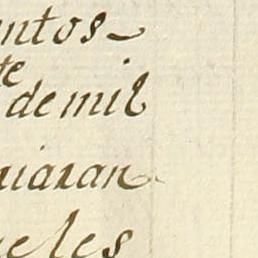 ntos
te
de mil
iaran
les